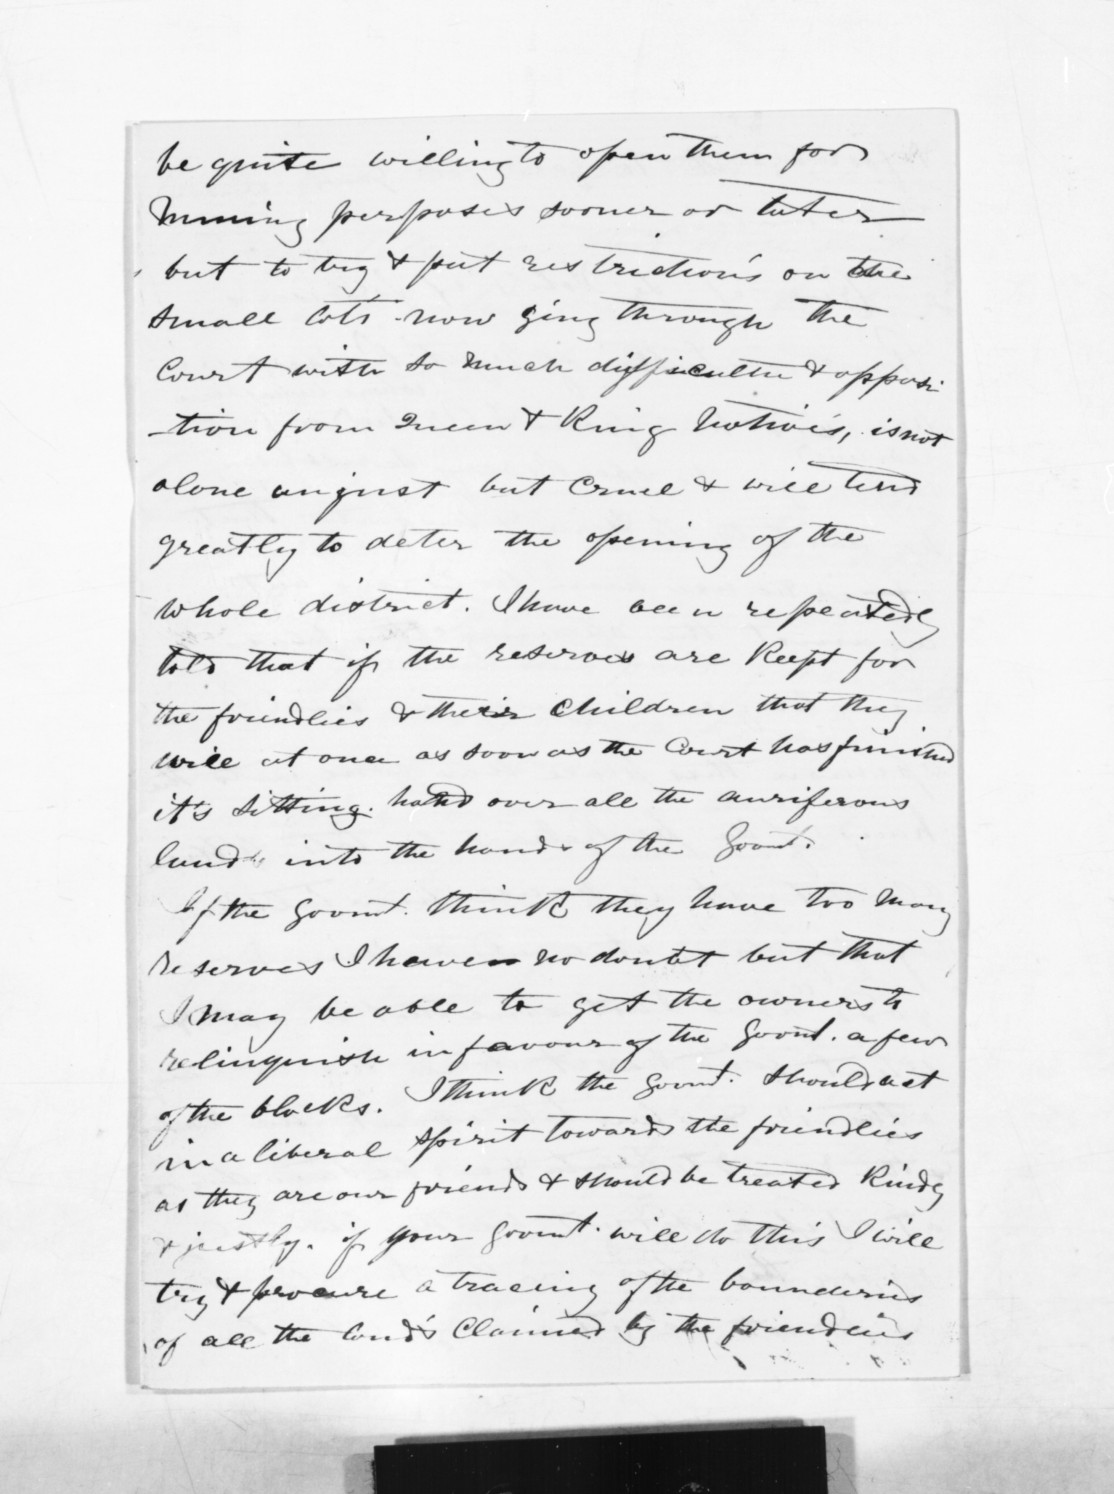 be quite willing to open them for
Mining perposes sooner or later
but to try & put restriction's on the
small lots now ging through the
Court with so much difficulte & opposi
-tion from Queen & King Native's, is not
alone unjust but Cruel & will tend
greatly to deter the opening of the
whole district. I have been repeatedly
told that if the reserves are Keept for
the friendlies & their Children that they
will at once as soon as the Court has finished
it's sitting. hand over all the auriferous
lands into the hands of the Govmt.
If the Govmt. think they have too many
reserves I have no doubt but that
I may be able to get the owners to
relinquish in favour of the Govmt. a few
of the blocks. I think the Govmt. should act
in a liberal spirit towards the friendlies
as they are our friends & should be treated Kindly
& justly. if your Govmt. will do this I will
try & procure a tracing of the bounderies
of all the land's Claimed by the friendlies